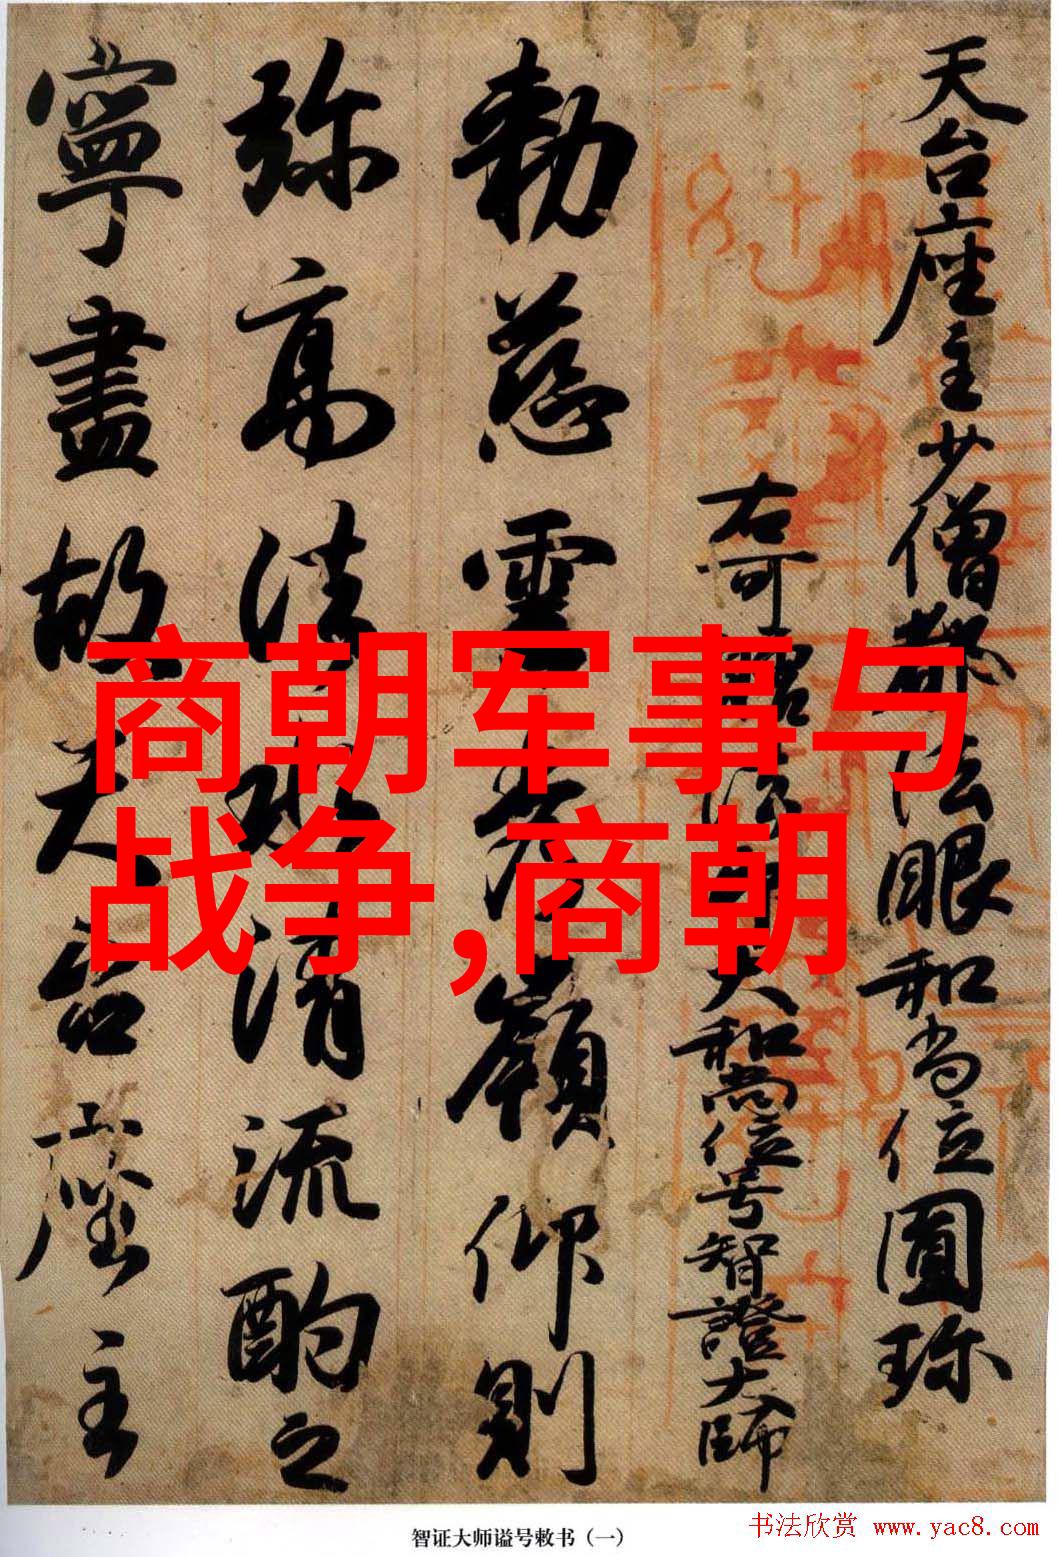 天台座主少僧都法眼和尚位圓珎
右可
大和尚位号智證大師
勅慈雲
嶺仰則
弥高法
清流酌之
寧盡故天台座主
商朝军事与
战争,商朝
智证大师谥号敕书（一）
书法欣赏 www.yac8.com